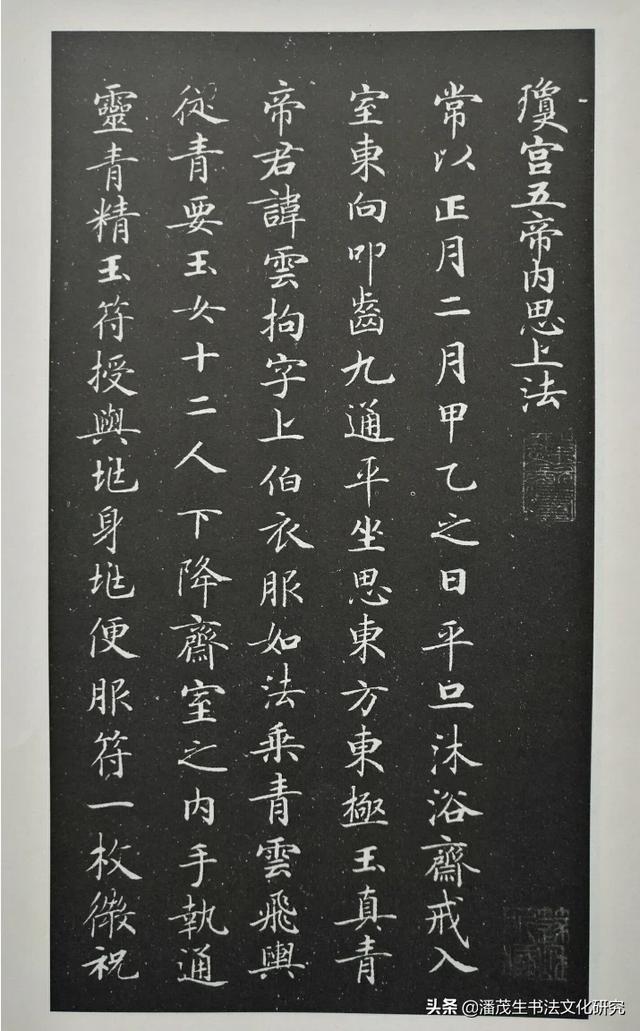 瓊宮五帝內思上法
常以正月二月甲乙之日平旦沐浴齋戒入
室東向叩齒九通平坐思東方東極玉真青
帝君諱雲拘字上伯衣服如法乘青雲飛輿
從青要玉女十二人下降齋室之內手執通
靈青精玉符授與垍身垍便服符一枚微祝
头条@潘茂生书法文化研究